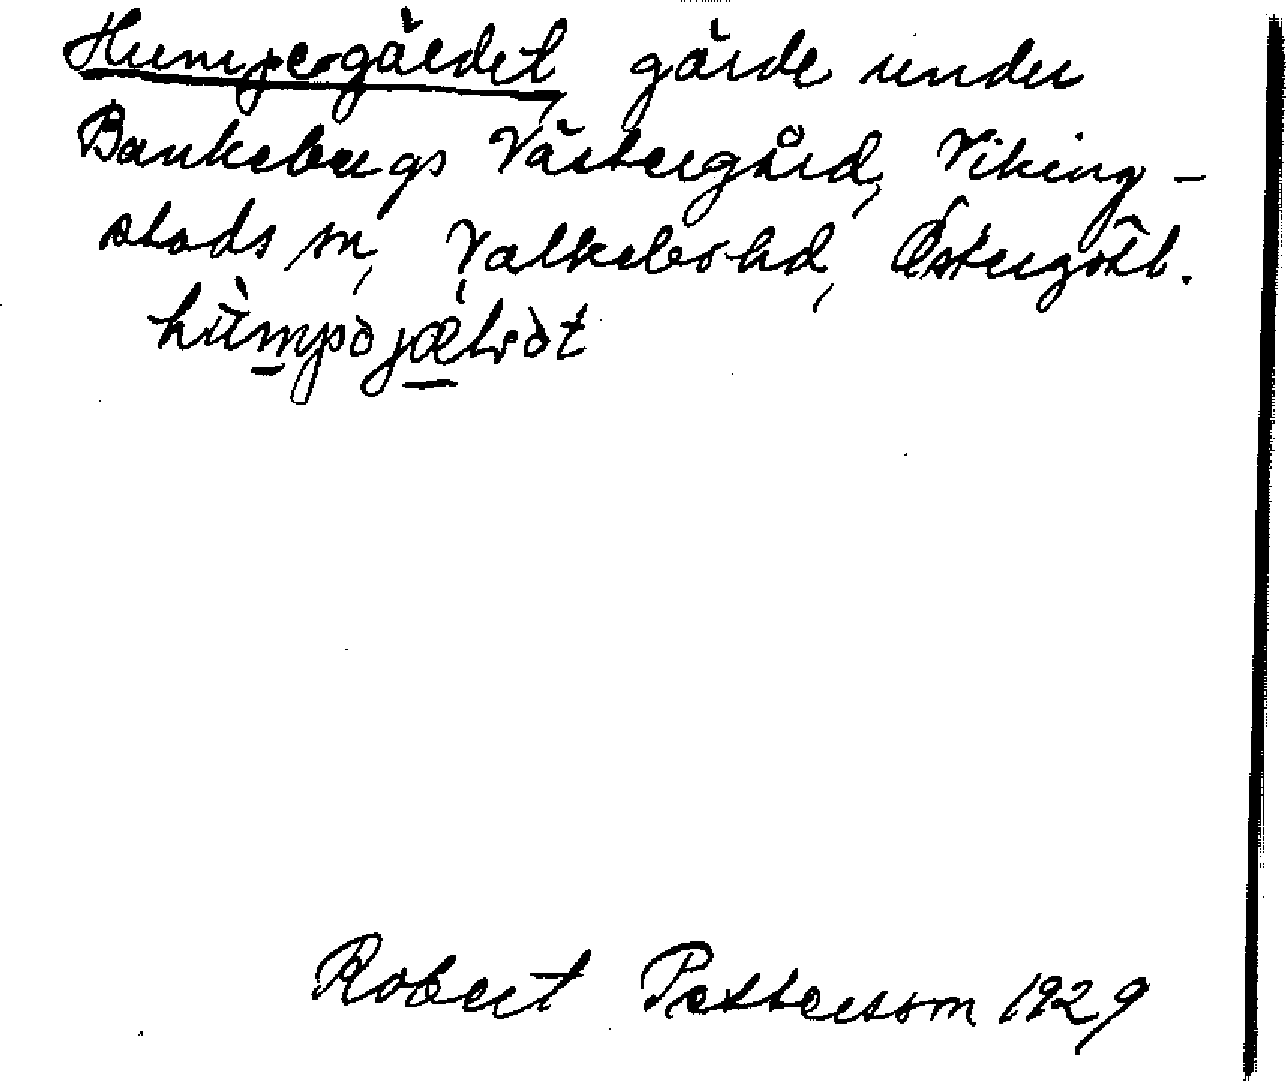 Humpergärdet, gärde under
Bankebergs Västergård, Viking-
stads sn, Valkebo hd, Östergötl.
Robert Pettersson 1929